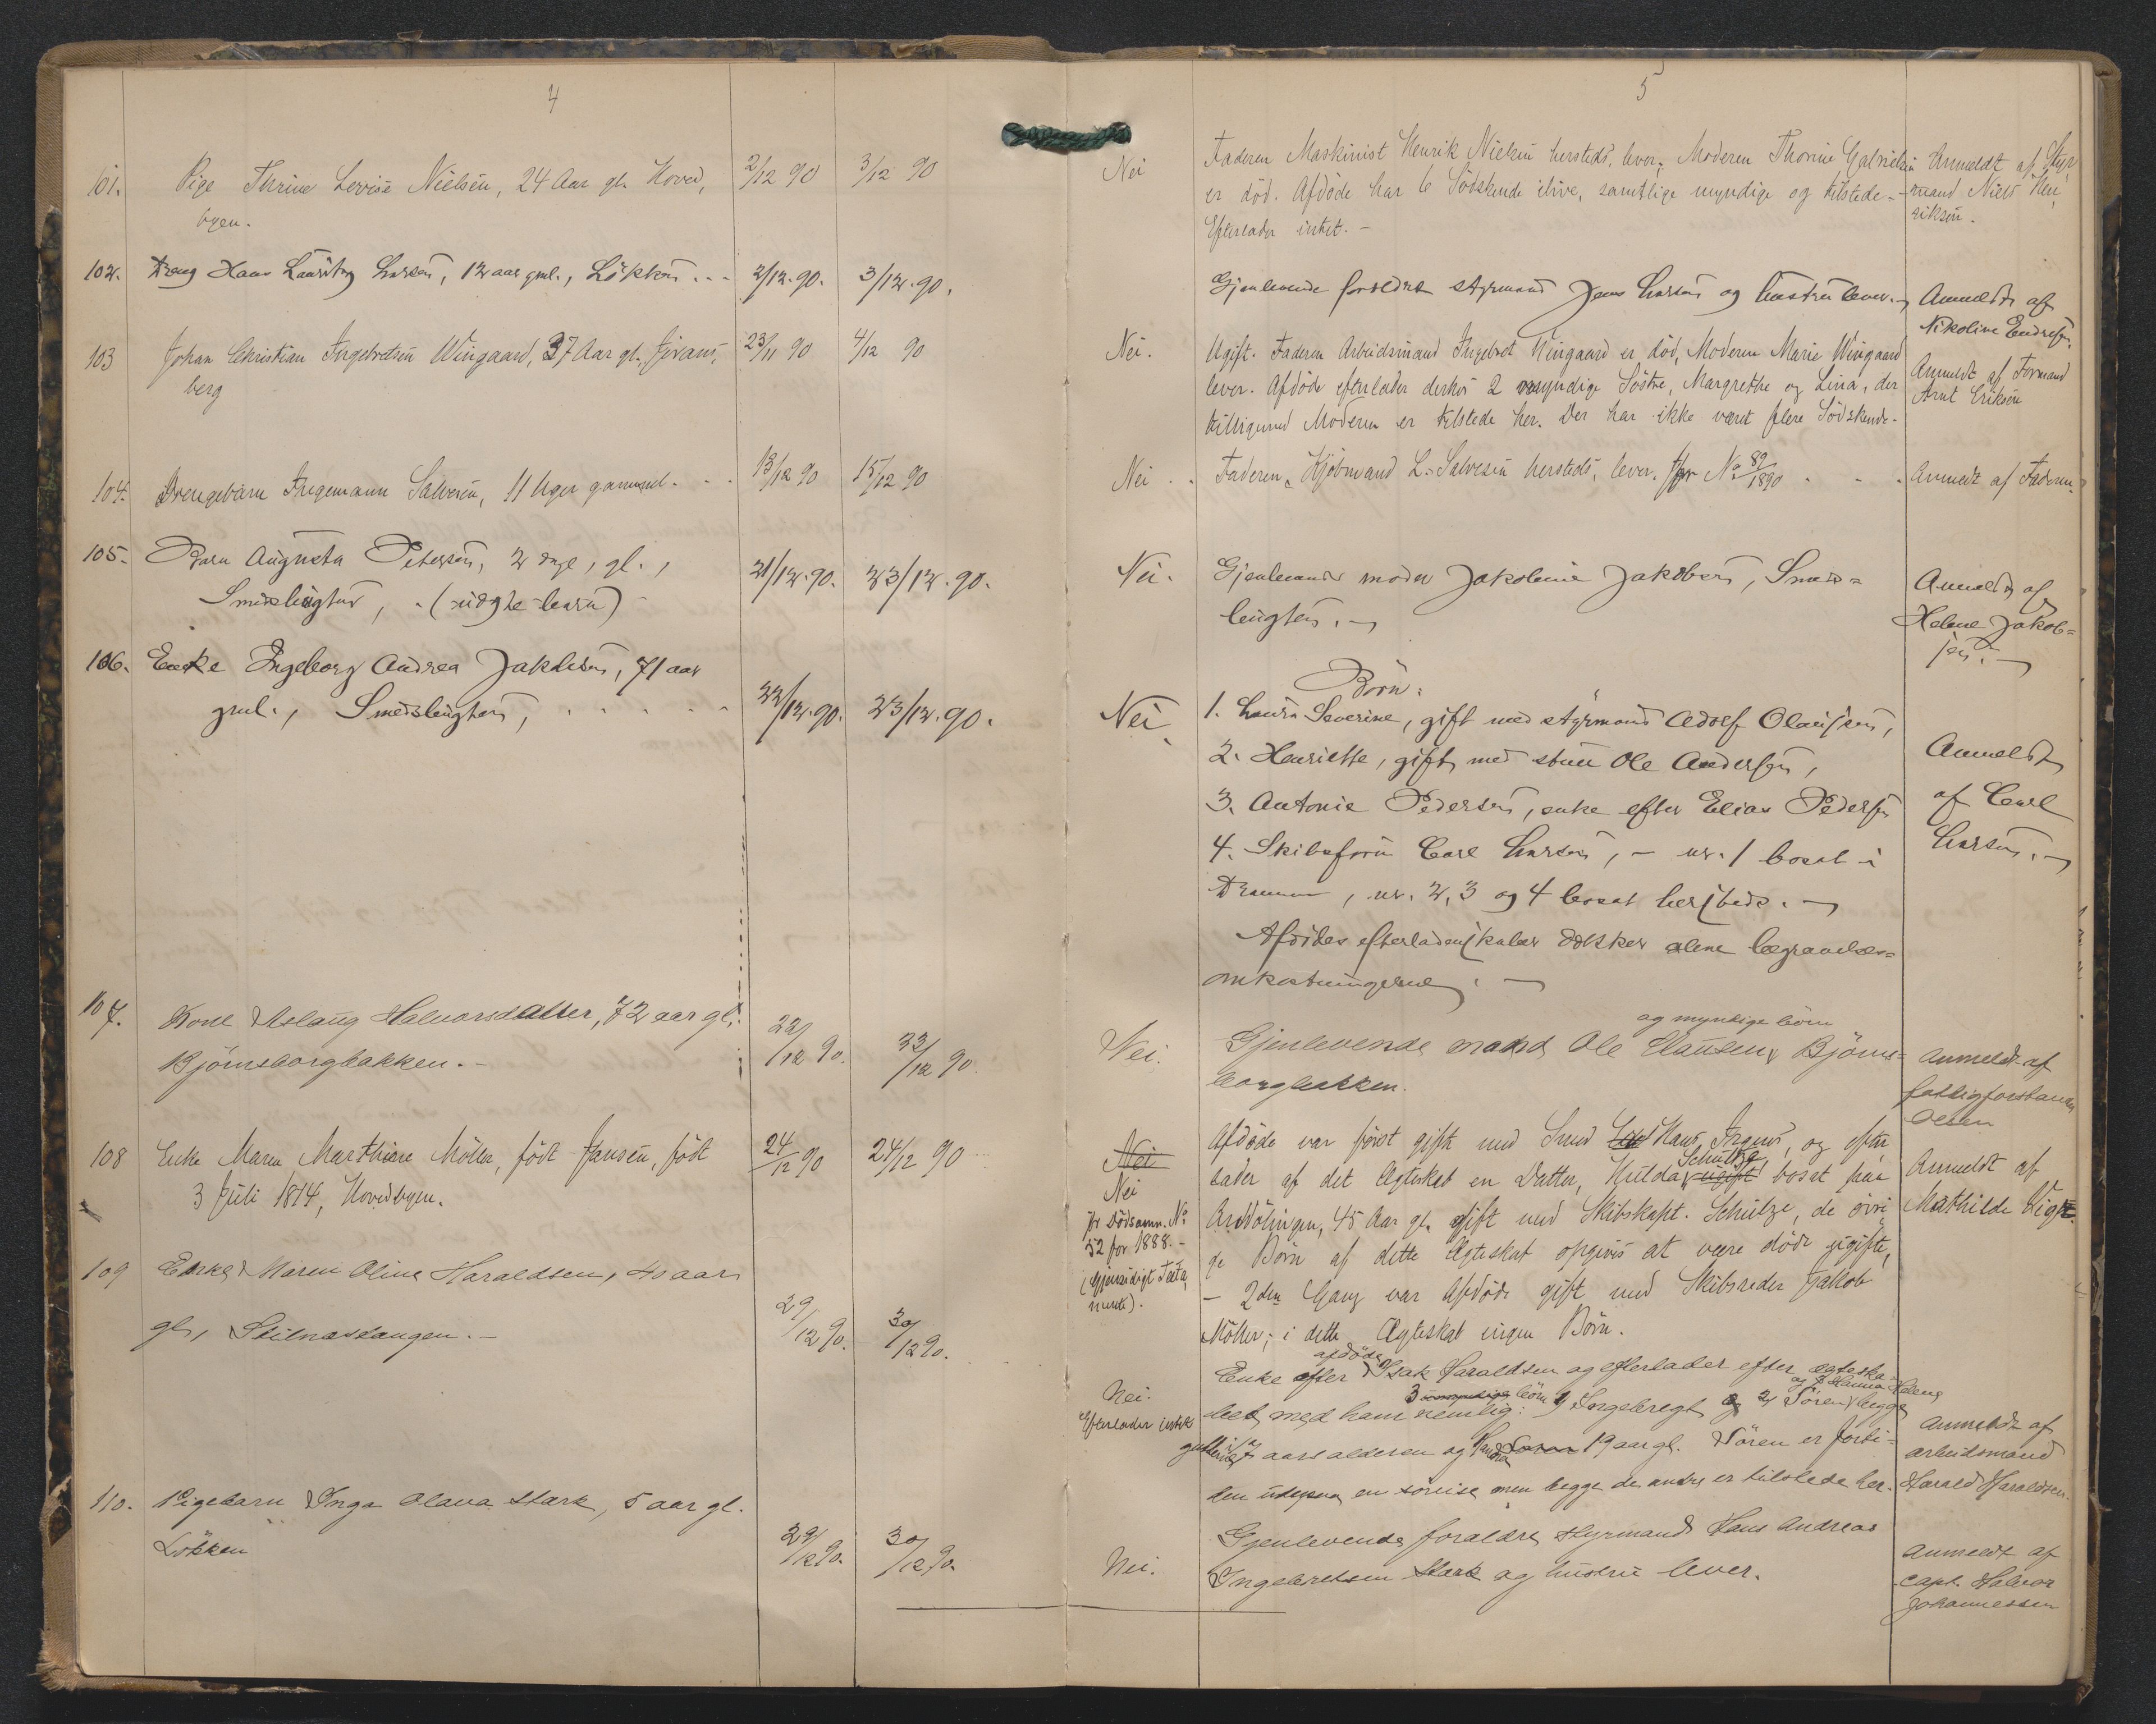 4
101. Pige Thrine Lovise Nielsen, 24 Aar gl. Hoved, 2/12 90 3/12 90
byen.
102. Dreng Hans Lauritz Larsen, 12 aar gml., Løkken .. - 2/12.90. 3/12.90.
103 Johan Christian Ingebretsen Wingaard, 37 Aar gl., 23/11 90 4/12 90
berg
104. Drengebarn Ingemann Salvesen, 11 Uger gammel. - 13/12 90 15/12 90
105. Barn Augusta Petersen, 2 dage, gl., 21/12.90. 23/12.90.
Smedsbugten, (uægte barn)
106. Enke Ingeborg Andrea Jakobsen, 71 aar
gml., Smedsbugten, . . . . . 22/12.90. 23/12.90.
107. Kone Aslaug Halvorsdatter, 72 aar gl.
Bjørnsborgbakken. - 22/12 90. 23/12 90
108 Enke Maren Marthine Möller, født Jansen, født 24/12 90 24/12 90
3 Juli 1814, Hovedbyen.
109 Enke Maren Oline Haraldsen, 40 aar
gl., 29/12 90. 30/12 90.
110. Pigebarn Inga Olava Stærk, 5 aar gl.
Løkken 29/12 90. 30/12 90.
5
Nei Faderen Maskinist Henrik Nielsen hersteds, lever; Moderen Thorine Gabrielsen Anmeldt af Styr
er død. Afdøde har 6 Södskende ilive, samtlige myndige og tilstede. - mand Niels Hen
Efterlader intet. - riksen.
Gjenlevende forældre styrmand Jens Larsen og hustru lever. - Anmeldt af
Nikoline Endresen.
Nei. Ugift. Faderen Arbeidsmand Ingebret Wingaard er död, Moderen Marie Wingaard
lever. Afdöde efterlader derhos 2 myndige Söstre, Margrethe og Lina, der Anmeldt af Formand
tilligemed Moderen er tilstede her. Der har ikke været flere Södskende. Arnt Eriksen
Nei . . Faderen, Kjöbmand L. Salvesen hersteds, lever. Jfr No 89/1890 . . . Anmeldt af Faderen.
Nei. Gjenlevende moder Jakobine Jakobsen, Smeds= Anmeldt af
bugten. - Helene Jakob=
sen. -
Børn:
Nei 1. Laura Severine, gift med styrmand Adolf Olausen,
2. Henriette, gift med Ole Andersen, Anmeldt
3. Antonie Pedersen, enke efter Elias Pedersen af Carl
4. Skibsfører Carl Larsen, - nr. 1 bosat i Larsen. -
Drammen, nr. 2, 3 og 4 bosat hersteds. -
Afdødes efterladenskaber dækker alene begravelses=
omkostningerne. -
og myndige børn
Nei. Gjenlevende mand Ole Clausen, Bjørns= Anmeldt af
borgbakken. fattigforstander
Olsen
Nei Afdøde var først gift med Smed Hans Irgens, og efter
Schultze
Nei lader af det Ægteskab en Datter, Hulda, ugift bosat paa Anmeldt af
jfr Dödsanm. No Arndölingen, 45 Aar gl. gift med Skibskapt. Schultze, de övri Mathilde Vigt.
52 for 1888. - ge Börn af dette Ægteskab opgives at være döde ugifte,
(Gjensidigt Testa - 2den Gang var Afdöde gift med Skibsreder Jakob
mente). Möller; i dette Ægteskab ingen Börn.
afdøde
Enke efter Isak Haraldsen og efterlader efter ægteska=
og 3 Hanna Helene
Nei. 3 umyndige børn
Efterlader intet bet med ham nemlig: 1 Ingebregt og 2 Sören begge Anmeldt af
aars alderen og 19 aar gl. Sören er forti= arbeidsmand
den udepaa en söreise men begge de andre er tilstede her. Harald Haraldsen.
Gjenlevende forældre Styrmand Hans Andreas
Nei. Ingebretsen Stærk og hustru lever. Anmeldt af
Capt. Halvor
Johannessen